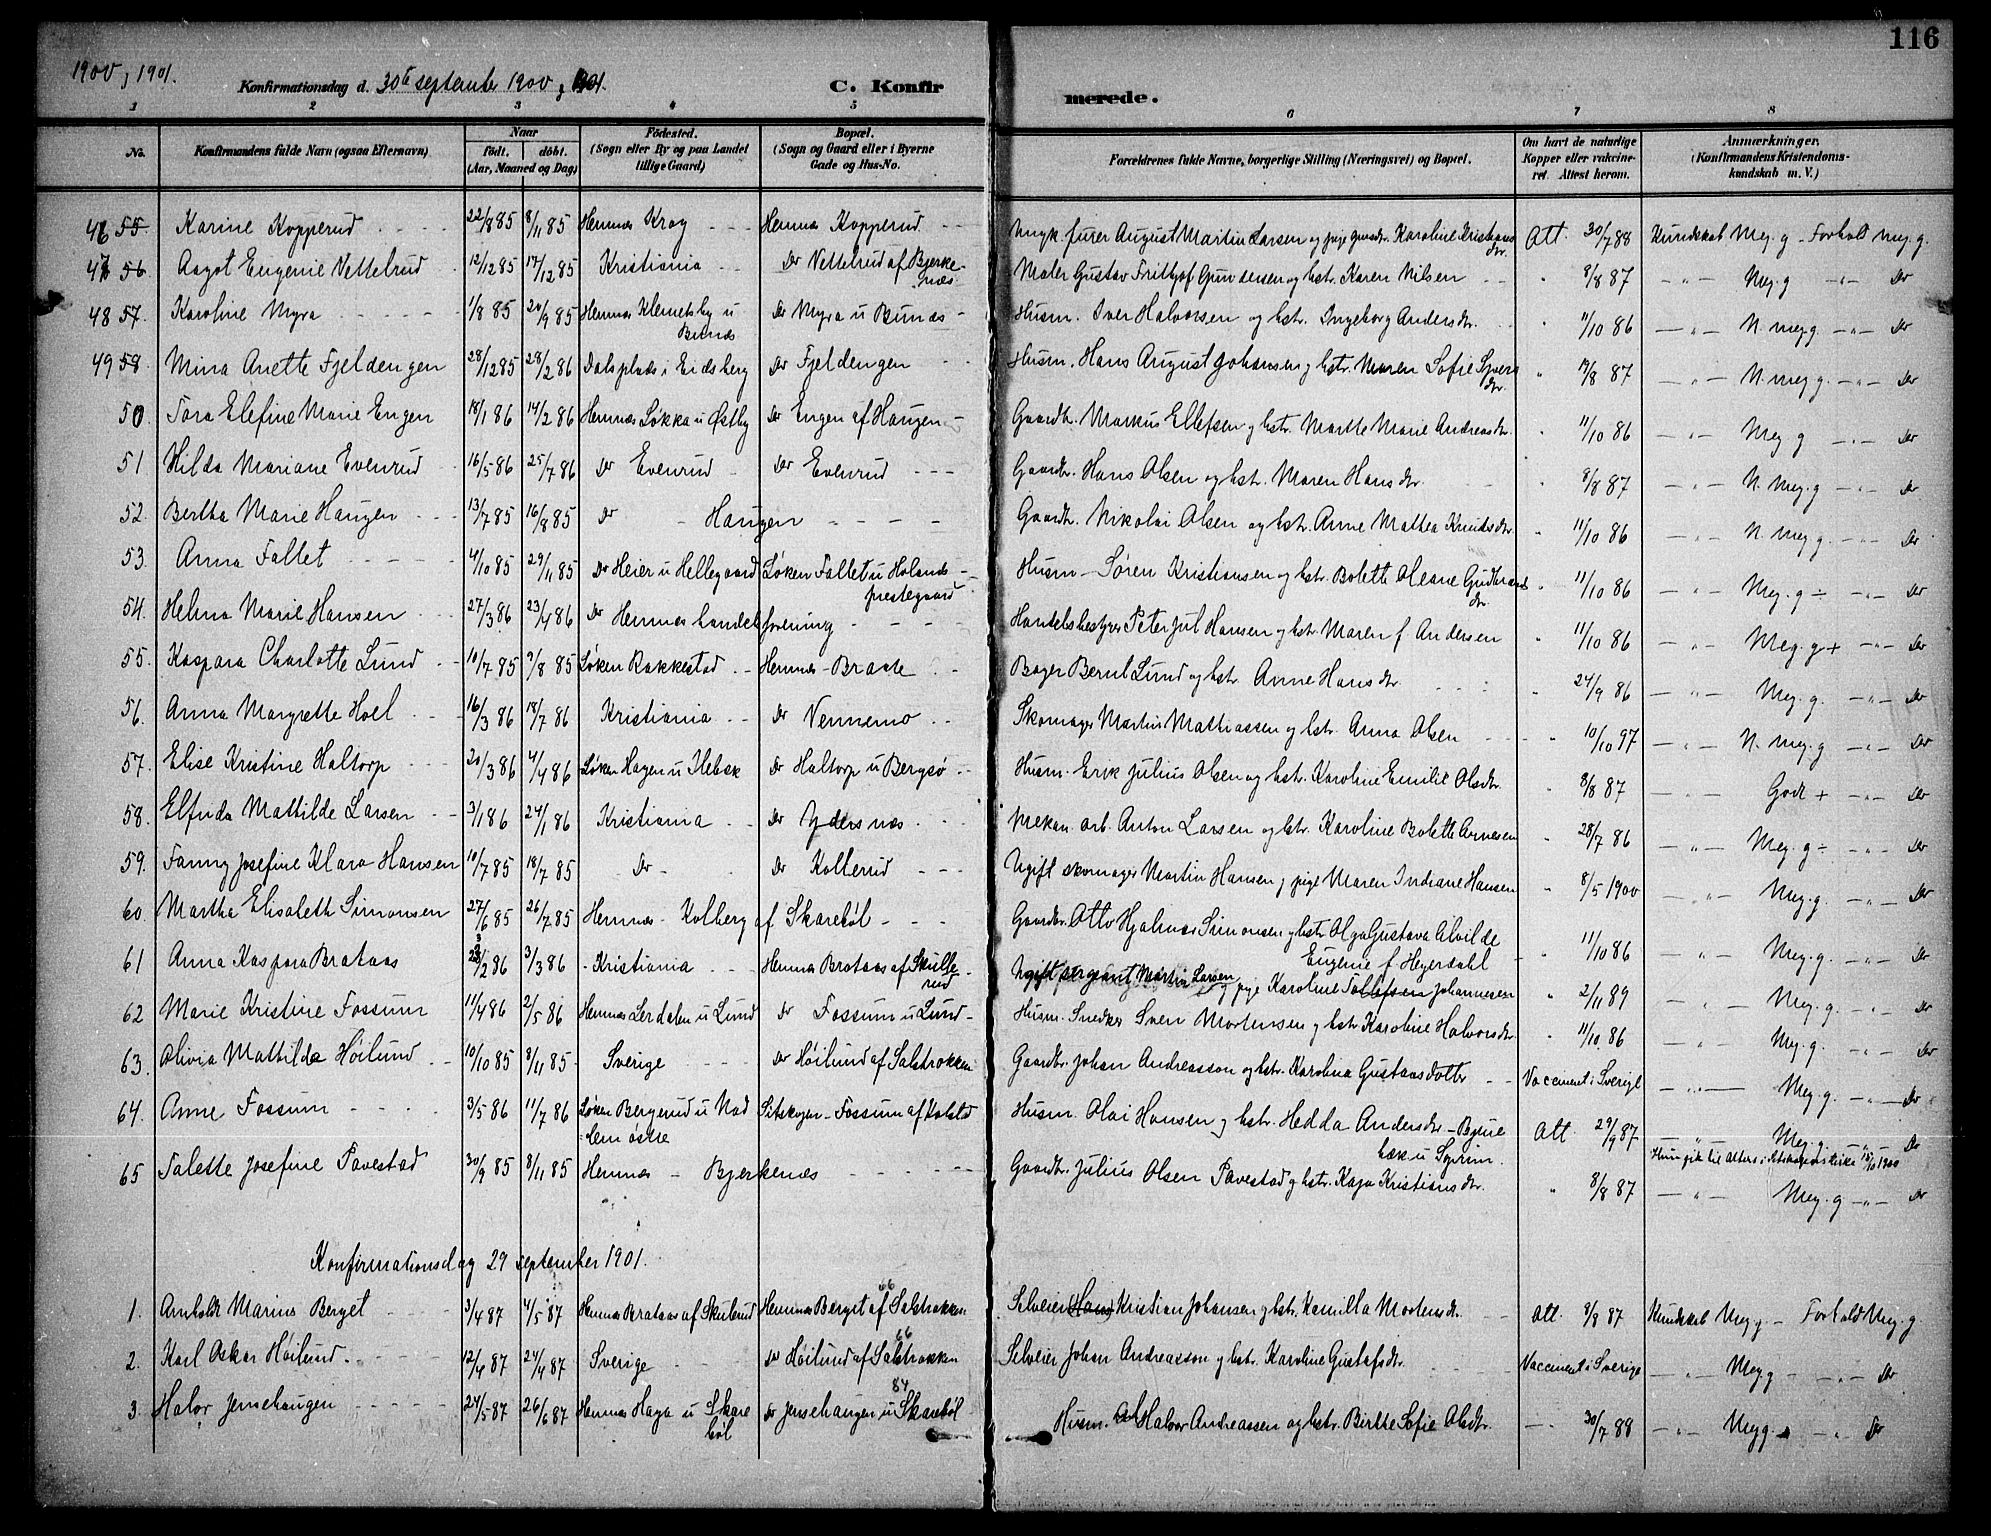 116
1900, 1901.
Konfirmationsdag d. 30te september 1900, 1901. C. Konfirmerede.
1 2 3 4 5 6 7 8
No. Konfirmandens fulde Navn (ogsaa Efternavn) Naar födt. döbt. (Aar, Maaned og Dag) Födested. (Sogn eller By og paa Landet tillige Gaard) Bopæl. (Sogn og Gaard eller i Byerne Gade og Hus-No. Forældrenes fulde Navne, borgerlige Stilling (Næringsvei) og Bopæl. Om havt de naturlige Kopper eller vakcineret. Attest herom. Anmærkninger. (Konfirmandens Kristendomskundskab m. V.)
46 55 Karine Kopperud 22/8 85 8/11 85 Hemnæs Krog Hemnæs Kopperud Ungk. furer August Martin Larsen og pige Karoline Kristians dr. Att. 30/7 88 Kundskab Meg. g - Forhold meg. g.
47 56 Aagot Eugenie Vettelrud 12/12 85 17/12 85 Kristiania Do Vettelrud af Bjerkenæs Maler Gustav Fritjof Gundersen og hstr. Karen Nilsen " 8/8 87 - " - Meg. g - " - Do
48 57. Karoline Myra 1/8 85 20/9 85 Hemnæs Klemetsby u Bunæs Do Myra u Bunæs Husm. Iver Halvorsen og hstr. Ingeborg Andersdr. " 11/10 86 - " - N. meg g. - " - Do
49 58. Mina Anette Fjeldengen 28/12 85 28/2 86 Dalsplads i Eidsberg Do Fjeldengen Husm. Hans August Johansen og hstr. Maren Sofie Syvers dr. " 17/8 87 - " - N. meg g. - " - Do
50 Tora Elefine Marie Engen 18/1 86 14/2 86 Hemnæs Løkka u Østby Do Engen af Haugen Gaardbr. Markus Ellefsen og hstr. Marthe Marie Andreasdr. " 11/10 86 - " - Meg g - " - Do
51 Hilda Mariane Evenrud 16/5 86 25/7 86 Do Evenrud Do Evenrud Gaardbr. Hans Olsen og hstr. Maren Hansdr. " 8/8 87 - " - N. Meg. g - " - Do
52. Bertha Marie Haugen 13/7 85 16/8 85 Do - Haugen Gaardbr. Nikolai Olsen og hstr. Anne Mathea Knudsdr. " 11/10 86 - " - N. meg g. - " - Do
53. Anna Fallet 4/10 85 29/11 85 Do Heier u Hellegaard Løken Fallet u Hølands prestegaard Husm - Søren Kristiansen og hstr. Bolette Oleane Gudbrands dr. " 11/10 86 - " - Meg. g ÷ - " - Do
54. Helena Marie Hansen 27/3 86 23/4 86 Do Hemnæs handelsforening Handelsbestyrer Peter Jul Hansen og hstr. Maren f. Andersen " 11/10 86 - " - Meg. g + - " - Do
55. Kaspara Charlotte Lund 10/7 85 9/8 85 Løken Rakkestad Hemnæs - Braate Bager Bernt Lund og hstr Anne Hansdr. " 24/9 86 - " - Meg. g. - " - Do
56. Anna Margrethe Hoel 16/3 86 18/7 86 Kristiania Do Vennemo Skomager Martin Mathiassen og hstr. Anna Olsen " 10/10 97 - " - N. meg. g - " - Do
57. Elise Kristine Haltorp 20/3 86 4/4 86 Løken Hagen u Ilebek Do Haltorp u Bergsø Husm. Erik Julius Olsen og hstr. Karoline Emilie Olsdr. " 8/8 87 - " - Godt + - " - Do
58. Elfrida Mathilde Larsen 3/1 86 24/1 86 Kristiania Do Ydersnæs Mekan. arb. Anton Larsen og hstr. Karoline Bolette Arnesen " 28/7 86 - " - Meg. g ÷ - " - Do
59. Fanny Josefine Klara Hansen 10/7 85 18/7 85 Do Do Kollerud Ugift skomager Martin Hansen og pige Maren Indiane Hansen " 8/5 1900 - " - Meg. g. - " - Do
60. Martha Elisabeth Simonsen 27/6 85 26/7 85 Hemnæs - Kolberg af Skarebøl Gaardbr. Otto Hjalmar Simonsen og hstr Olga Gustava Alvilde Eugenie f. Heyerdahl " 11/10 86 - " - Meg. g. - " - Do
61 Anna Kaspara Brataas 23/2 86 3/3 86 Kristiania Hemnæs Brataas af Skullerud Ugift sergeant Martin Larsen og pige Karoline Tollefsen Johannesen " 2/11 89 - " - Meg. g. - " - Do
62 Marie Kristine Fossum 11/4 86 2/5 86 Hemnæs Lerdalen u Lund Do Fossum u Lund Husm. Snedker Sven Mortensen og hstr Karoline Halvorsdr. " 11/10 86 - " - Meg. g. - " - Do
63. Olivia Mathilda Höilund 10/10 85 8/11 85 Sverige Do Höilund af Salstrokken Gaardbr. Johan Andreasson og hstr. Karolina Gustavsdotter Vaccinert i Sverige - " - Meg. g. - " - Do
64. Anne Fossum 3/5 86 11/7 86 Løken Bergerud u Nadlem østre Setskogen - Fossum af Kolstad Husm. Olai Hansen og hstr. Hedda Andersdr - Bjenebæk u Soprim. Att. 29/9 87 - " - Meg. g. - " - Do
Hun gik til Alters i Setskogens kirke 14/10 1900
65 Talette Josefine Tavestad 30/9 85 8/11 85 Hemnæs - Bjerkenæs Gaardbr. Julius Olsen Tavestad og hstr. Kaja Kristiansdr. " 8/8 87 - " - Meg. g - " - Do
Konfirmationsdag 29 september 1901.
1. Arnholdt Marius Berget 3/4 87 4/5 87 Hemnæs Brataas af Skulerud Hemnæs Berget af Salstrokken 66 Selveier (Hans) Kristian Johansen og hstr. Kamilla Mortensdr. Att. 8/8 87 Kundskab Meg g - Forhold Meg. g.
2. Karl Oskar Höilund. 12/4 87 24/4 87 Sverige Do Höilund af Salstrokken 66 Selveier Johan Andreasson og hstr. Karoline Gustafsdr. Vaccinert i Sverige - " - Meg g - " - Do
3. Halvor Jensehaugen 24/5 87 26/6 87 Hemnæs Haga u Skarebøl Do Jensehaugen u Skarebøl 84 Husm. Halvor Andreassen og hstr. Birthe Sofie Olsdr. - 30/7 88 - " - Meg g. - " - Do